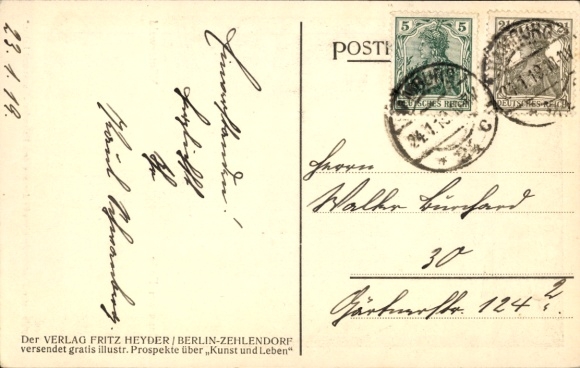 23.1.19.
Einverstanden!
herzlichst
Ihr
Paul
POSTK
5
DEUTSCHES REICH
2½
DEUTSCHES REICH
HAMBURG
24.1.19
C
Herrn
Walter Burchard
30
Gärtnerstr. 124 2.
Der VERLAG FRITZ HEYDER / BERLIN-ZEHLENDORF
versendet gratis illustr. Prospekte über „Kunst und Leben“